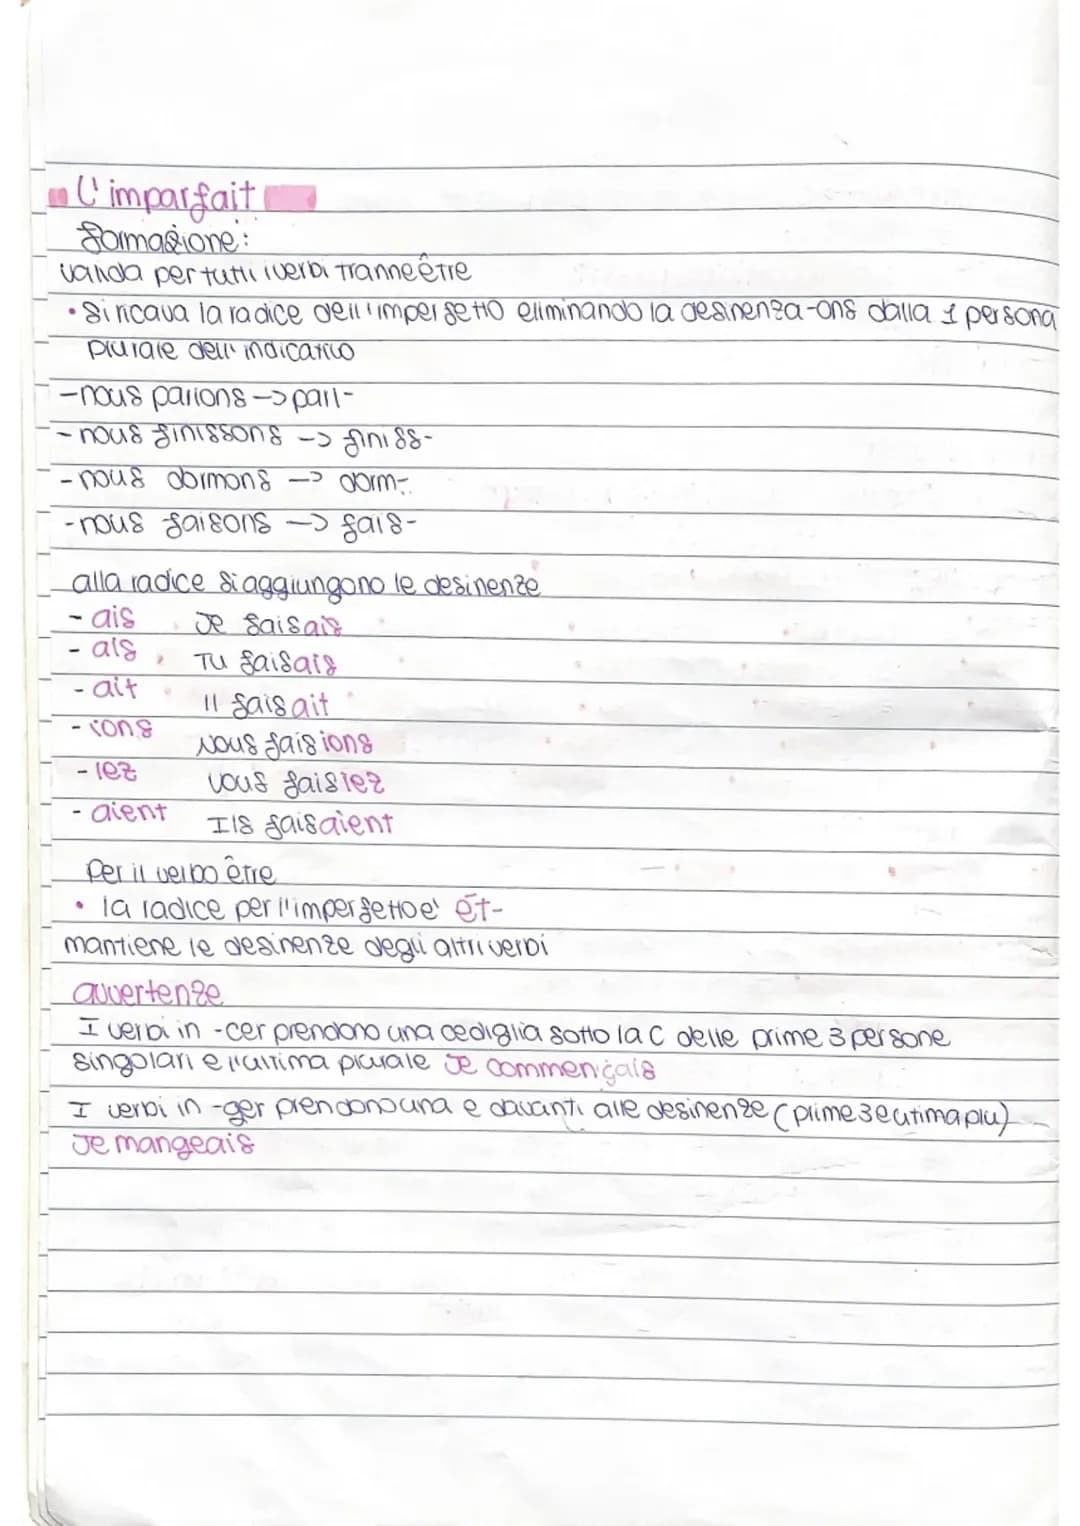 L'imparfait
formazione:
valida per tutti i verbi tranne être
• Si ricava la radice dell'imperfetto eliminando la desinenza -ons dalla 1 persona
plurale dell'indicativo
- nous parlons -> parl-
- nous finissons -> finiss-
- nous dormons -> dorm-
- nous faisons -> fais-
alla radice si aggiungono le desinenze
- ais Je faisais
- ais Tu faisais
- ait Il faisait
- ions Nous faisions
- iez Vous faisiez
- aient Ils faisaient
Per il verbo être
• la radice per l'imperfetto e' ét-
mantiene le desinenze degli altri verbi
avvertenze
I verbi in -cer prendono una cediglia sotto la C delle prime 3 persone
singolari e l'ultima plurale Je commençais
I verbi in -ger prendono una e davanti alle desinenze (prime 3 e utima plu)
Je mangeais